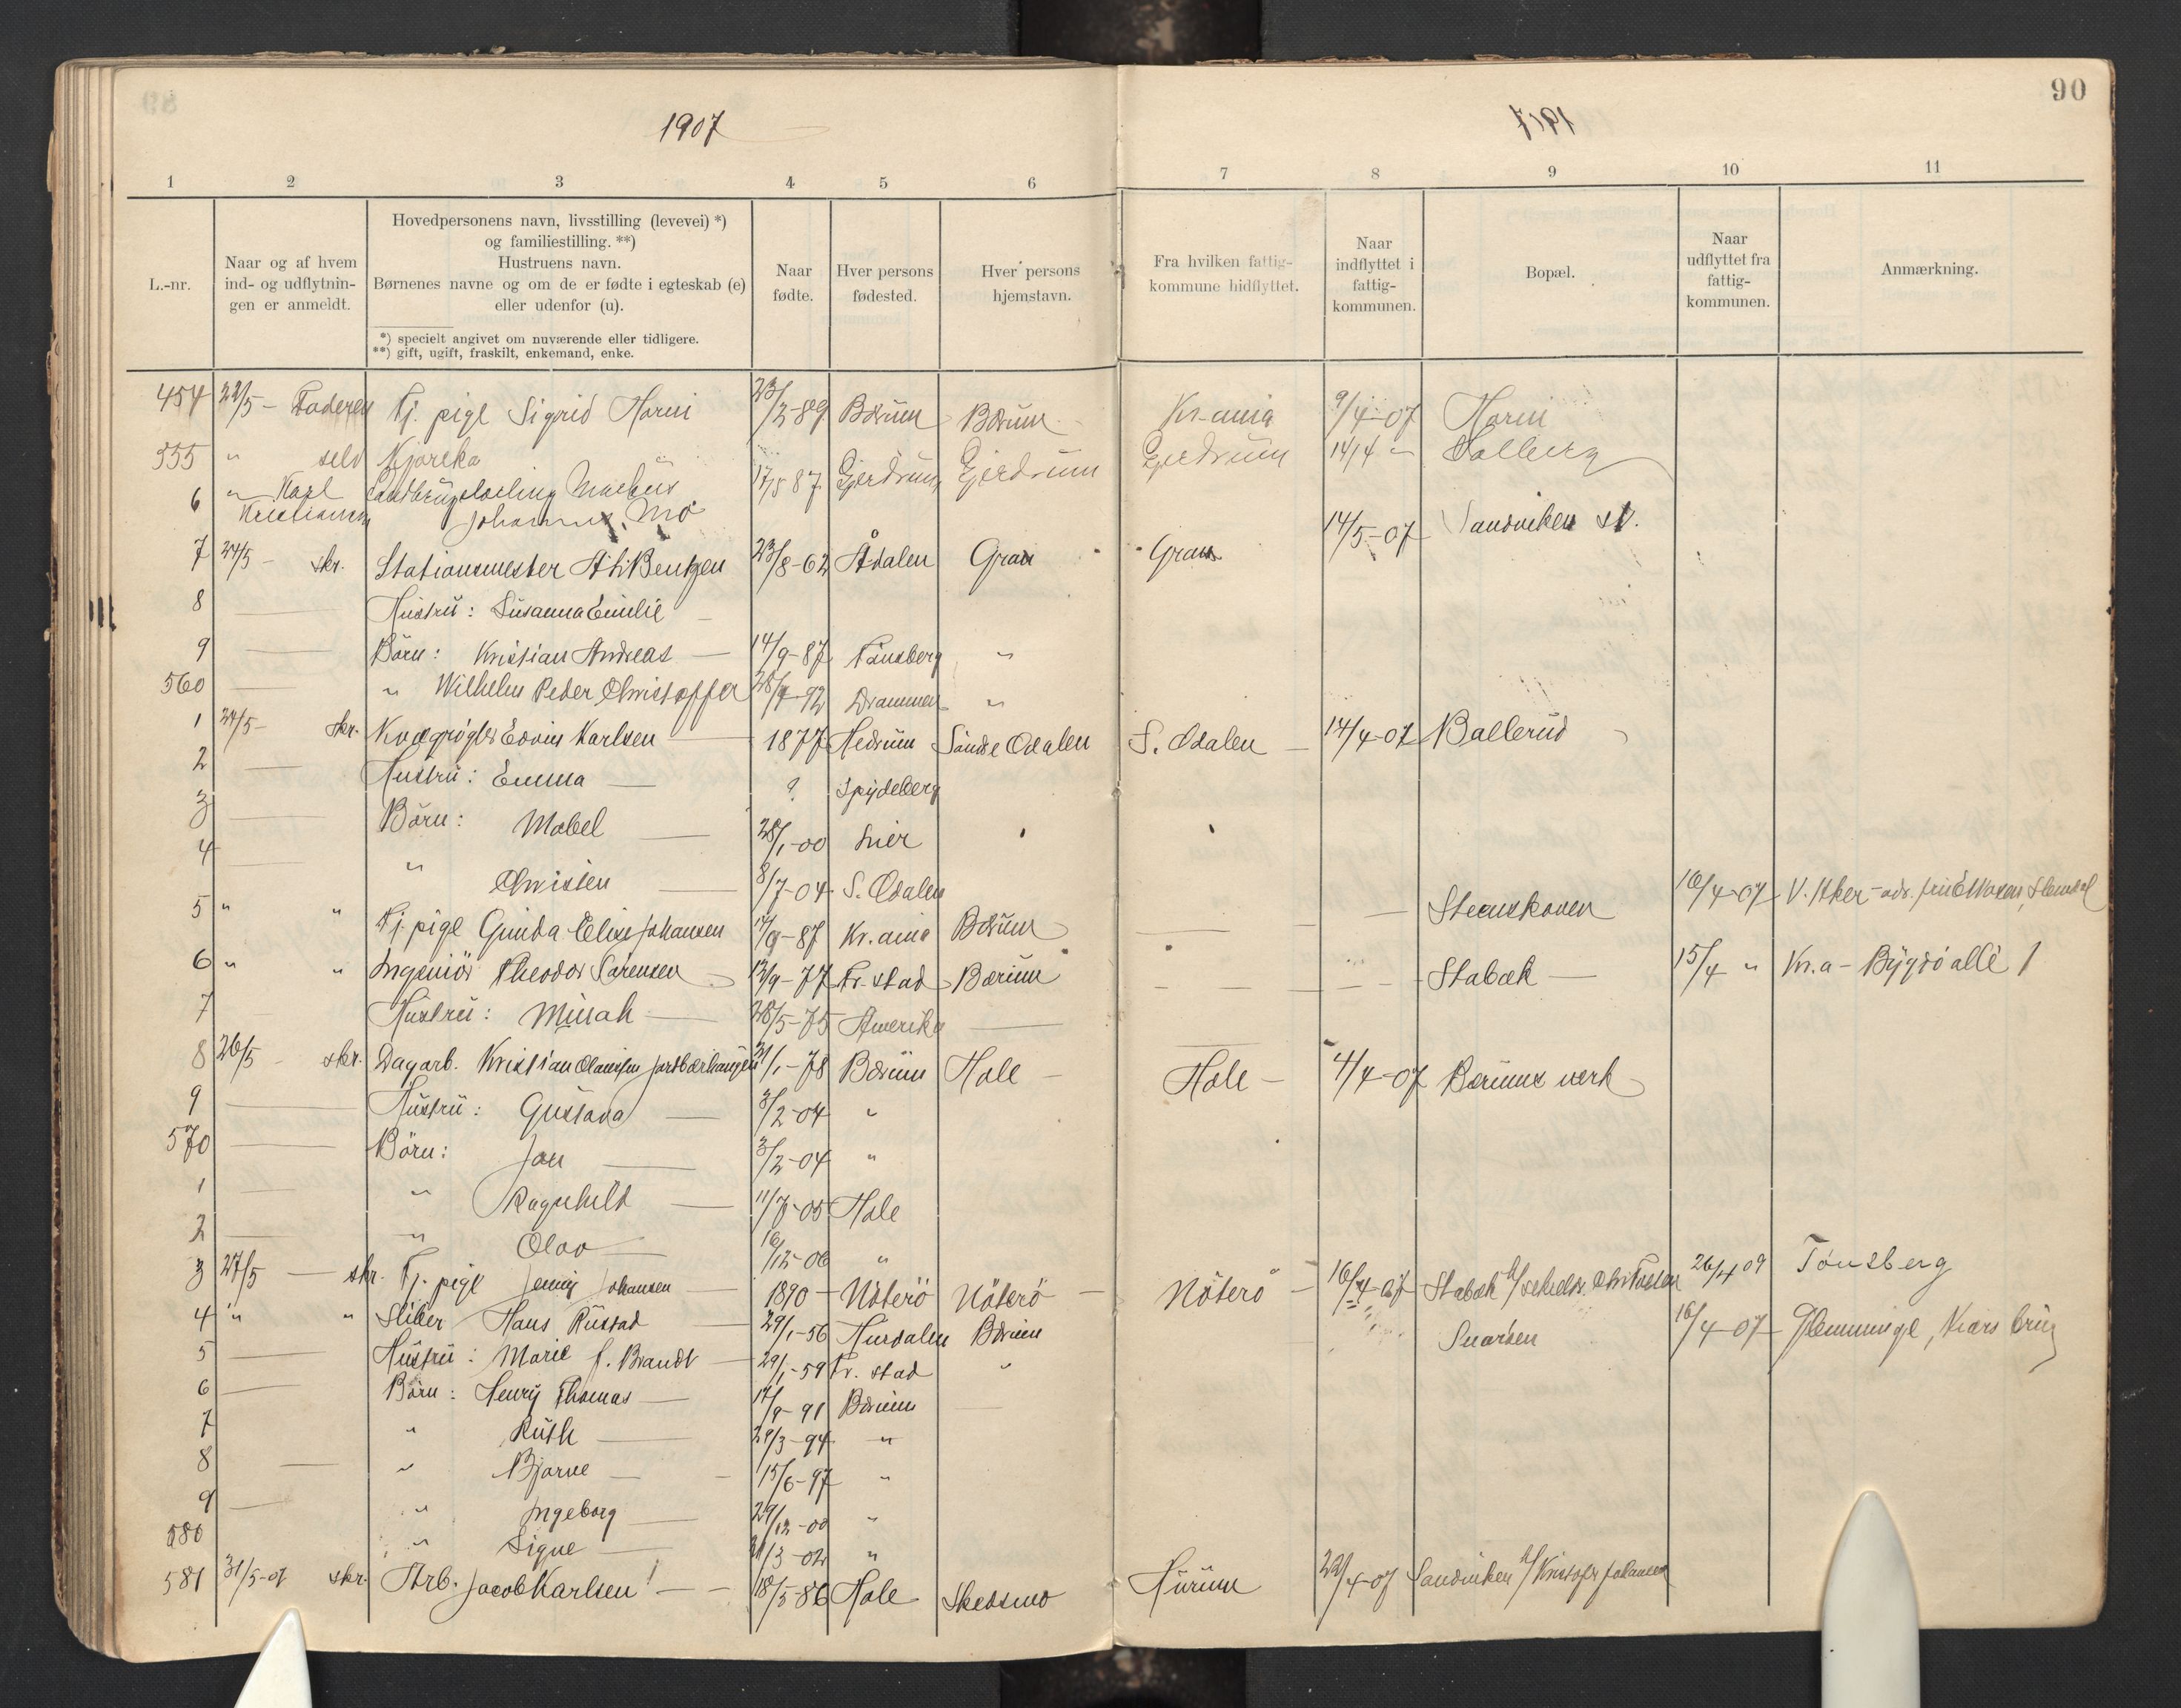 90
1907
1 2 3 4 5 6 7 8 9 10 11
L.-nr.
Naar og af hvem
ind- og udflytnin-
gen er anmeldt.
Hovedpersonens navn, livsstilling (levevei) *)
og familiestilling. **)
Hustruens navn.
Børnenes navne og om de er fødte i egteskab (e)
eller udenfor (u).
*) specielt angivet om nuværende eller tidligere.
**) gift, ugift, fraskilt, enkemand, enke.
Naar
fødte.
Hver persons
fødested.
Hver persons
hjemstavn.
Fra hvilken fattig-
kommune hidflyttet.
Naar
indflyttet i
fattig-
kommunen.
Bopæl.
Naar
udflyttet fra
fattig-
kommunen.
Anmærkning.
454 22/5 - Faderen Tj. pige Sigrid Horni 23/2-89 Bærum Bærum Kr-ania 9/4-07 Horni
555 " selv 14/4 " Solberg
6 " Karl Markus 17/5 87 Gjerdrum Gjerdrum Gjerdrum
Johannes. Mo 14/5-07 Sandviken st.
7 24/5 - skr. Stationsmester Bentzen 23/8-62 Ådalen Gran Gran
8 Hustru: Susanna Emilie
9 Børn: Kristian Andreas 14/9-87 Tønsberg "
560 " Wilhelm Peder Christoffer 28/9-92 Drammen "
1 24/5- skr. Kvægrøgter Edvin Karlsen 1877 Hedrum Søndre Odalen S. Odalen 14/4-07 Ballerud
2 Hustru: Emma ? Spydeberg
3 Børn: Mabel 28/1-00 Lier
4 " Christen 8/7-04 S. Odalen
5 " " Tj. pige Gunda Elise Johansen 14/9-87 Kr. ania Bærum Stenskoven 16/4-07 V. Aker - adr. fru
6 " " Ingeniør Theodor Sørensen 13/9-77 Fr. stad Bærum Stabæk 15/4 " Kr.a - Bygdø allé 1
7 Hustru: Minah 28/5-75 Amerika
8 26/5 - skr. Dagarb. Kristian 21/1-78 Bærum Hole Hole 4/4-07 Bærums verk
9 Hustru: Gustava 3/2-04 "
570 Børn: Jan 3/2-04 "
1 " Ragnhild 11/7-05 Hole
2 " Olav 16/12-06 "
3 27/5 skr. Tj. pige Jenny Johansen 1890 Nøterö Nøterö Nøterö 16/4-07 Stabæk 26/4 09 Tønsberg
4 " " Sliber Hans Rustad 29/1-56 Hurdalen Bærum Snarøen 16/4-07 Glemminge,
5 Hustru: Marie f. Brandt 29/1-59 Fr. stad "
6 Børn: Henry Thomas 17/9-91 Bærum
7 " Ruth 29/3-94 "
8 " Bjarne 15/6-97 "
9 " Ingeborg 29/12-00 "
580 " Signe 21/3-02 "
581 31/5-07 skr. Arb. Jacob Karlsen 18/5-86 Hole Skedsmo Hurum 22/4-07 Sandviken b/ Kristofer Johansen